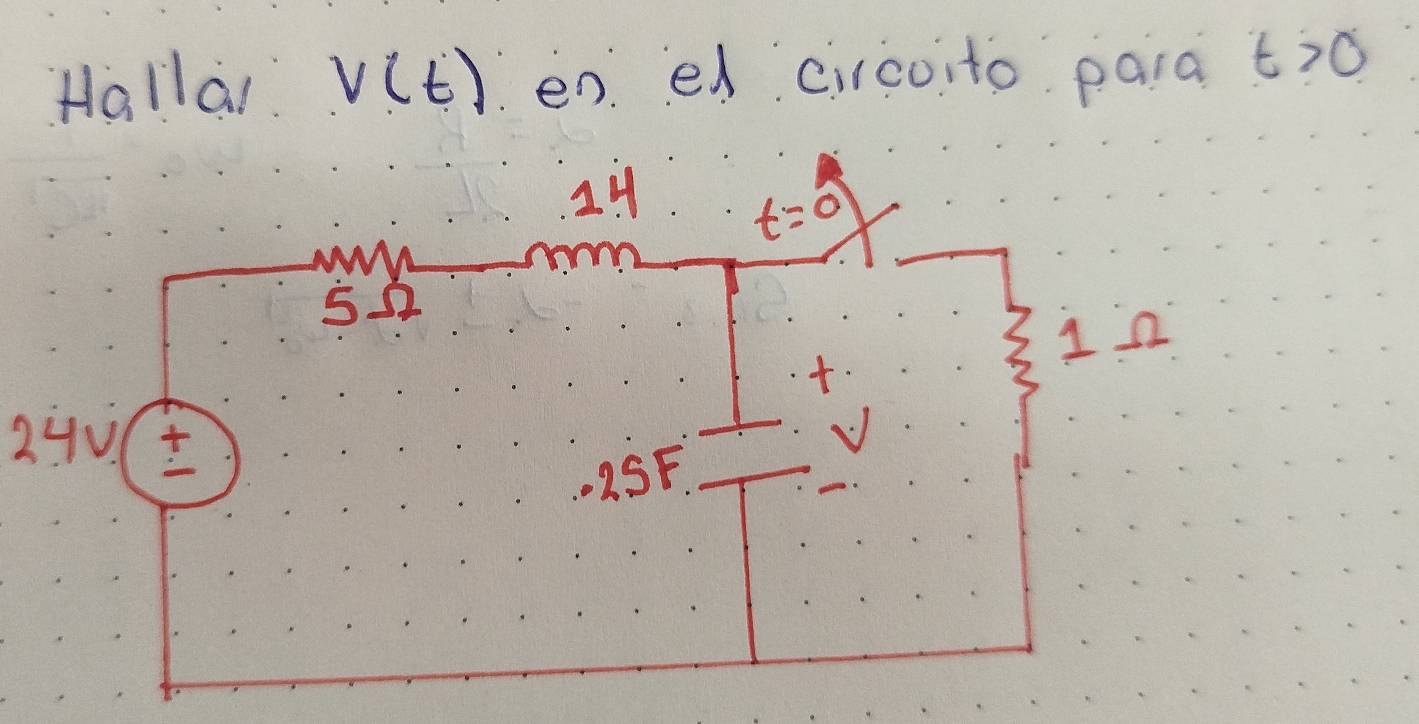 Hallar V(t) en el circuito para t>0
1H
t=0
5Ω
1Ω
+
24V
+
-
V
.25F
-